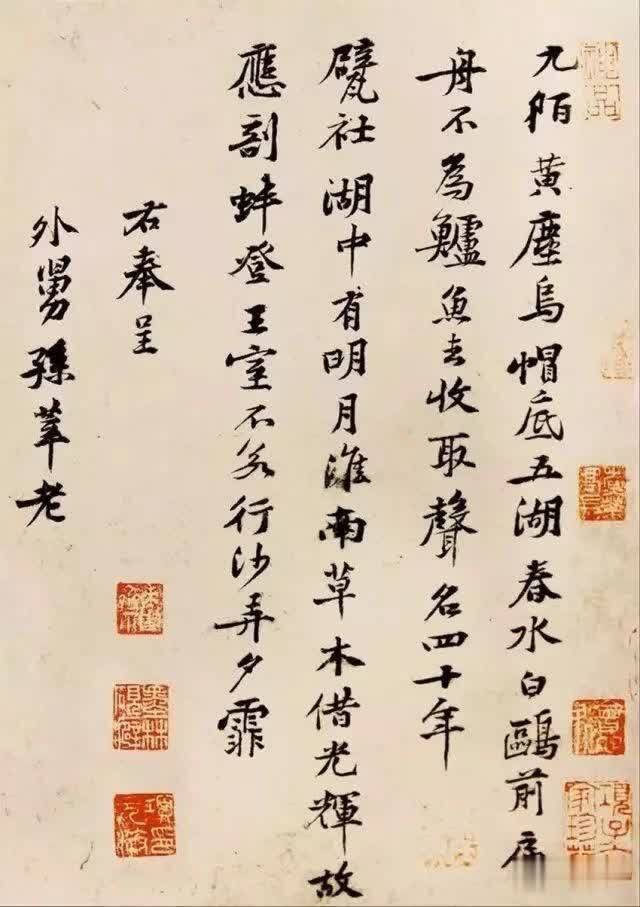 九陌黄塵烏帽底五湖春水白鷗前扁
舟不為鱸魚去收取聲名四十年
甓社湖中有明月淮南草木借光輝故
應剖蚌登王室不若行沙弄夕霏
右奉呈
外舅孫莘老
神品